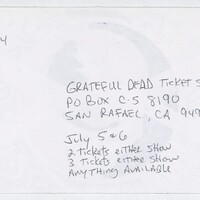 GRATEFUL DEAD TICKET S
PO BOX C-S 8190
SAN RAFAEL, CA 949
July 5 & 6
2 TICKETS EITHER SHOW
3 TICKETS EITHER SHOW
ANYTHING AVAILABLE